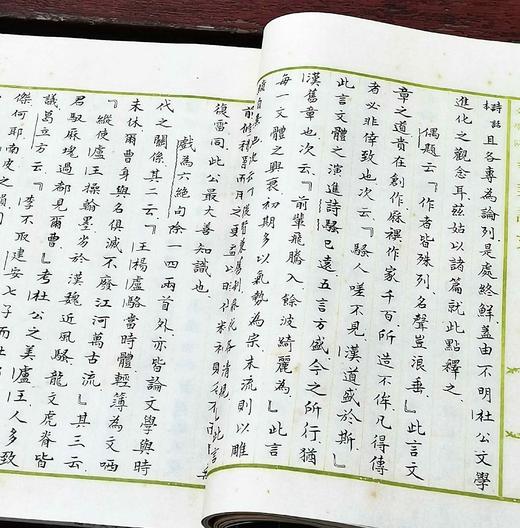 詩話
且各專為論列是處終鮮蓋由不明杜公文學
進化之觀念耳玆姑以諸篇就此點釋之
偶題云『作者皆殊列名聲豈浪垂』此言文
章之道貴在創作麻裸作家千百所造不侔凡得傳
者必非倖致也次云『騷人嗟不見漢道盛於斯』
此言文體之演進詩騷已遠五言方盛今之所行猶
漢舊章也次云『前輩飛騰入餘波綺麗為』此言
每一文體之興衰初期多以氣勢為宗末流則以雕
復雷同此公最大善知識也
戲為六絶句除一四兩首外亦皆論文學與時
代之關係其二云『王楊盧駱當時體輕薄為文哂
未休爾曹身與名俱滅不廢江河萬古流』其三云
『縱使盧王操翰墨劣於漢魏近風騷龍文虎脊皆
君馭歷塊過都見爾曹』考杜公之美盧王人多致
議葛立方云『李不取建安七子而
傑何耶南皮之